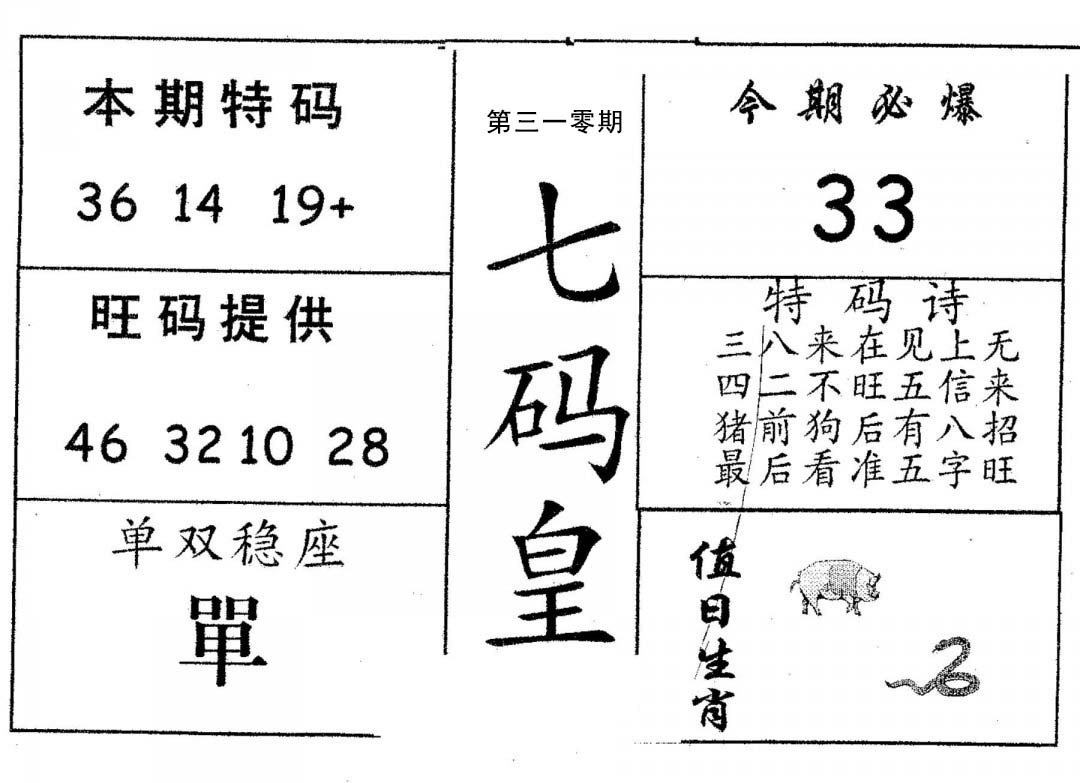 本期特码
36 14 19+
旺码提供
46 32 10 28
单双稳座
單
第三一零期
七码皇
今期必爆
33
特码诗
三八来在见上无
四二不旺五信来
猪前狗后有八招
最后看准五字旺
值日生肖